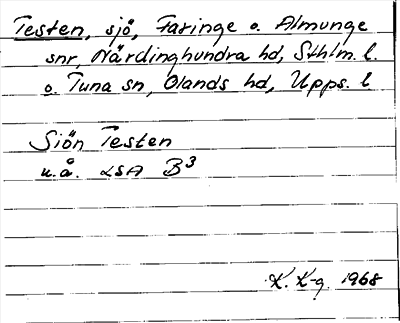 Testen, sjö, Faringe o. Almunge
snr, Närdinghundra hd, Sthlm. l.
o. Tuna sn, Olands hd, Upps. l
Sjön Testen
u.å. LSA B³
K. K-g. 1968